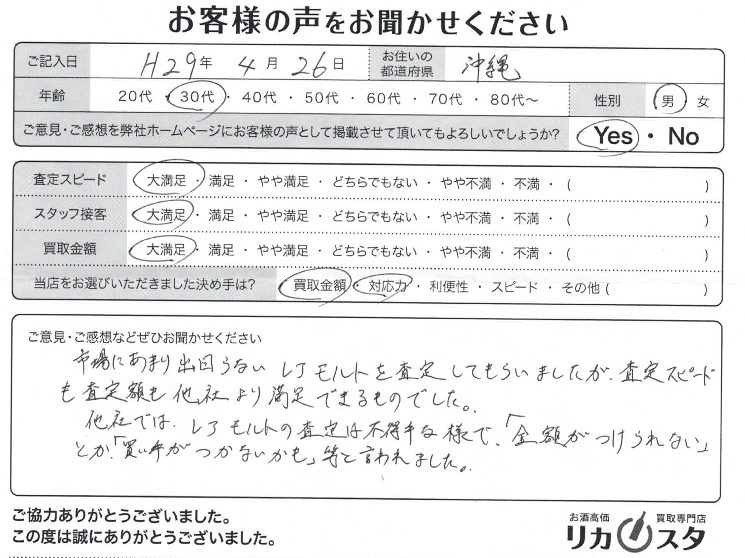 お客様の声をお聞かせください
ご記入日 H29年 4月 26日 お住いの都道府県 沖縄
年齢 20代・30代・40代・50代・60代・70代・80代～ 性別 男・女
ご意見・ご感想を弊社ホームページにお客様の声として掲載させて頂いてもよろしいでしょうか? Yes・No
査定スピード 大満足・満足・やや満足・どちらでもない・やや不満・不満・( )
スタッフ接客 大満足・満足・やや満足・どちらでもない・やや不満・不満・( )
買取金額 大満足・満足・やや満足・どちらでもない・やや不満・不満・( )
当店をお選びいただきました決め手は? 買取金額・対応力・利便性・スピード・その他( )
ご意見・ご感想などぜひお聞かせください
市場にあまり出回らないレアモルトを査定してもらいましたが、査定スピード
も査定額も他社より満足できるものでした。
他社では、レアモルトの査定は不得手な様で、「金額がつけられない」
とか「買い手がつかないかも」等と言われました。
ご協力ありがとうございました。
この度は誠にありがとうございました。
お酒高価 買取専門店
リカスタ